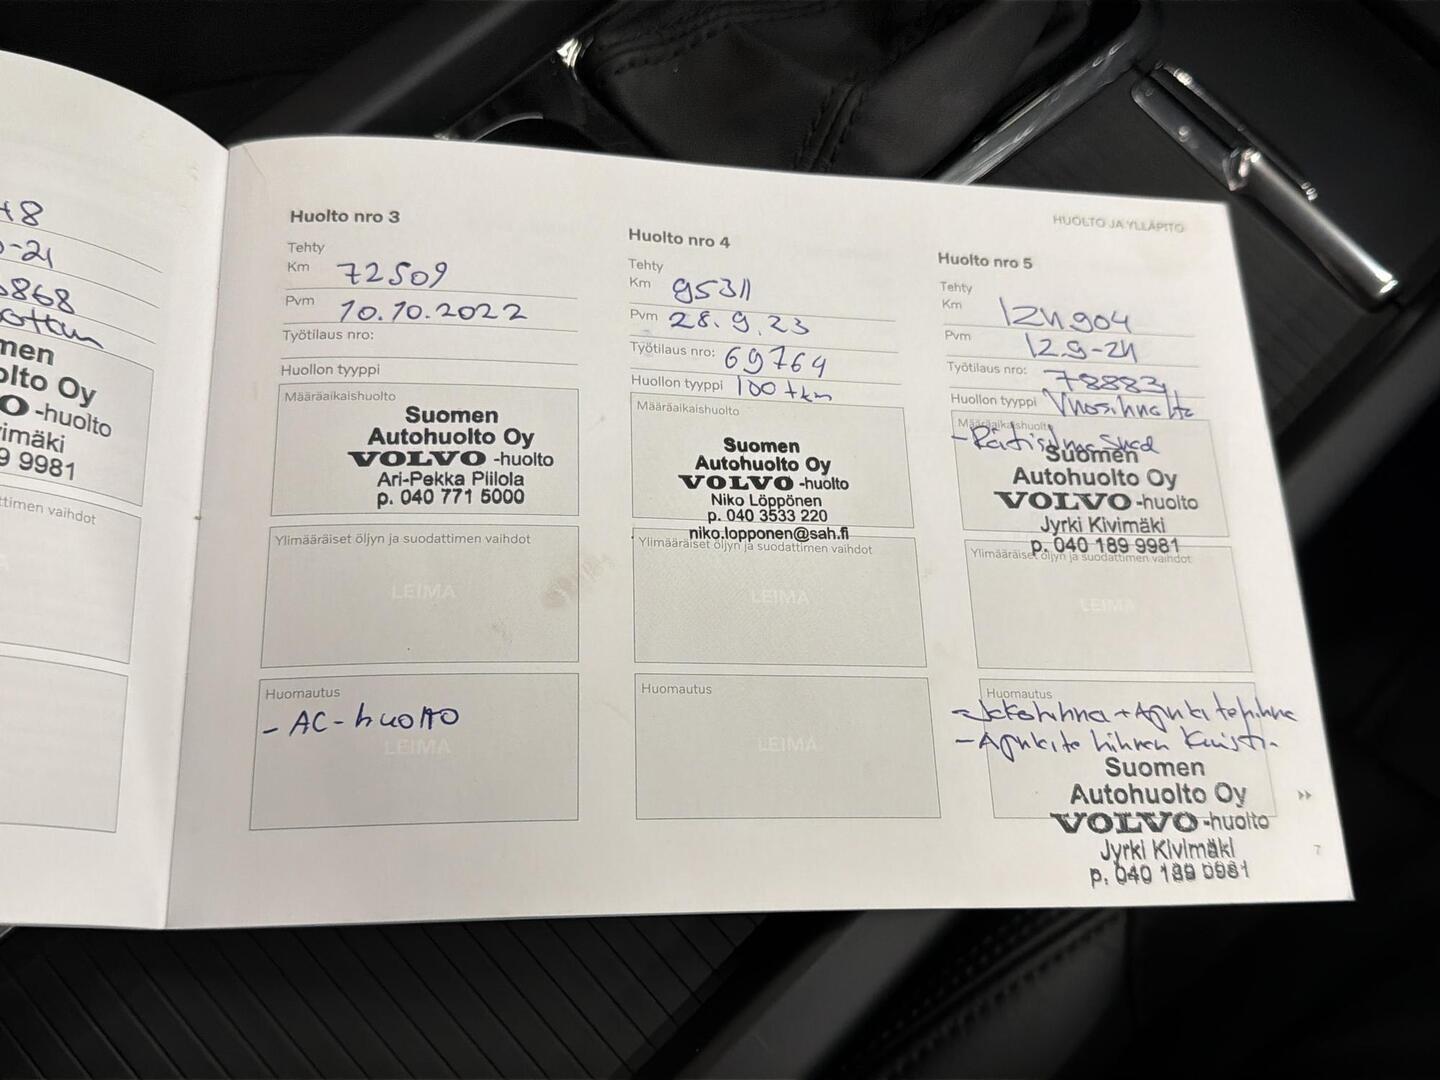 48
-21
868
men
olto Oy
O -huolto
vimäki
9 9981
timen vaihdot
HUOLTO JA YLLÄPITO
Huolto nro 3
Tehty
Km 72509
Pvm 10.10.2022
Työtilaus nro:
Huollon tyyppi
Määräaikaishuolto
Suomen
Autohuolto Oy
VOLVO -huolto
Ari-Pekka Piilola
p. 040 771 5000
Ylimääräiset öljyn ja suodattimen vaihdot
LEIMA
Huomautus
- AC-huolto
LEIMA
Huolto nro 4
Tehty
Km 95311
Pvm 28.9.23
Työtilaus nro: 69764
Huollon tyyppi 100 tkm
Määräaikaishuolto
Suomen
Autohuolto Oy
VOLVO -huolto
Niko Löppönen
p. 040 3533 220
niko.lopponen@sah.fi
Ylimääräiset öljyn ja suodattimen vaihdot
LEIMA
Huomautus
LEIMA
Huolto nro 5
Tehty
Km 124904
Pvm 12.9-24
Työtilaus nro: 78883
Huollon tyyppi Vuosihuolto
Määräaikaishuolto
Suomen
Autohuolto Oy
VOLVO -huolto
Jyrki Kivimäki
p. 040 189 9981
Ylimääräiset öljyn ja suodattimen vaihdot
LEIMA
Huomautus
- Jakohihna + Apulaitehihna
- Apulaitehihnan kirist.
Suomen
Autohuolto Oy
VOLVO -huolto
Jyrki Kivimäki
p. 040 189 9981
7